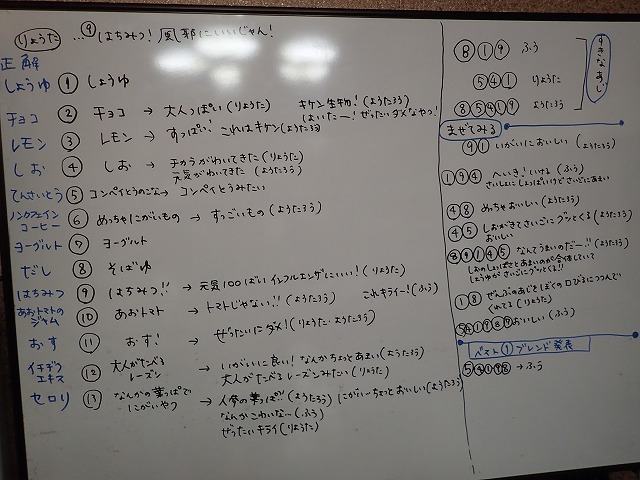 りょうた …⑨はちみつ! 風邪にいいじゃん!
正解
しょうゆ ① しょうゆ
チョコ ② チョコ → 大人っぽい(りょうた) キケン生物!(ようたろう)
はいたー!ぜったいダメなやつ!
レモン ③ レモン → すっぱい! これはキケン(ようたろう)
しお ④ しお → チカラがわいてきた(りょうた)
元気がわいてきた(ようたろう)
てんさいとう ⑤ コンペイとうのこな→ コンペイとうみたい
ノンカフェインコーヒー ⑥ めっちゃにがいもの → すっごいもの(ようたろう)
ヨーグルト ⑦ ヨーグルト
だし ⑧ そばゆ
はちみつ ⑨ はちみつ!! → 元気100ばい インフルエンザにいい!(りょうた)
あおトマトのジャム ⑩ あおトマト → トマトじゃない!!(ようたろう) これキライー!(ふう)
おす ⑪ おす! → ぜったいにダメ!(りょうた・ようたろう)
イチヂクエキス ⑫ 大人がたべるレーズン → いがいに良い!なんかちょっとあまい(ようたろう)
大人がたべるレーズンみたい(りょうた)
セロリ ⑬ なんかの葉っぱでにがいやつ → 人参の葉っぱ!!(ようたろう) にがいーちょっとおいしい(ようたろう)
なんかこわいな…(ふう)
ぜったいキライ(りょうた)
すきなあじ
⑧①⑨ ふう
⑤④① りょうた
⑧⑤④①⑨ ようたろう
まぜてみる
⑨① いがいにおいしい(ようたろう)
①⑨④ へいき!いける(ふう)
さいしょにしょっぱいけどさいごにあまい
④⑧ めっちゃおいしい(ようたろう)
④⑤ しおがきてさいごにグッとくる(ようたろう)
おいしい
⑧⑨①④⑤ なんてうまいのだー!!(ようたろう)
しおのしょっぱさとあまいのが合体していて
しょうゆがさいごにグッとくる!!
①⑧ ぜんぶのあじをぼくの口びるにつつんで
くれてる(りょうた)
⑤④①⑨⑧⑨おいしい(ふう)
ベスト①ブレンド発表
⑤④①⑨⑧ → ふう